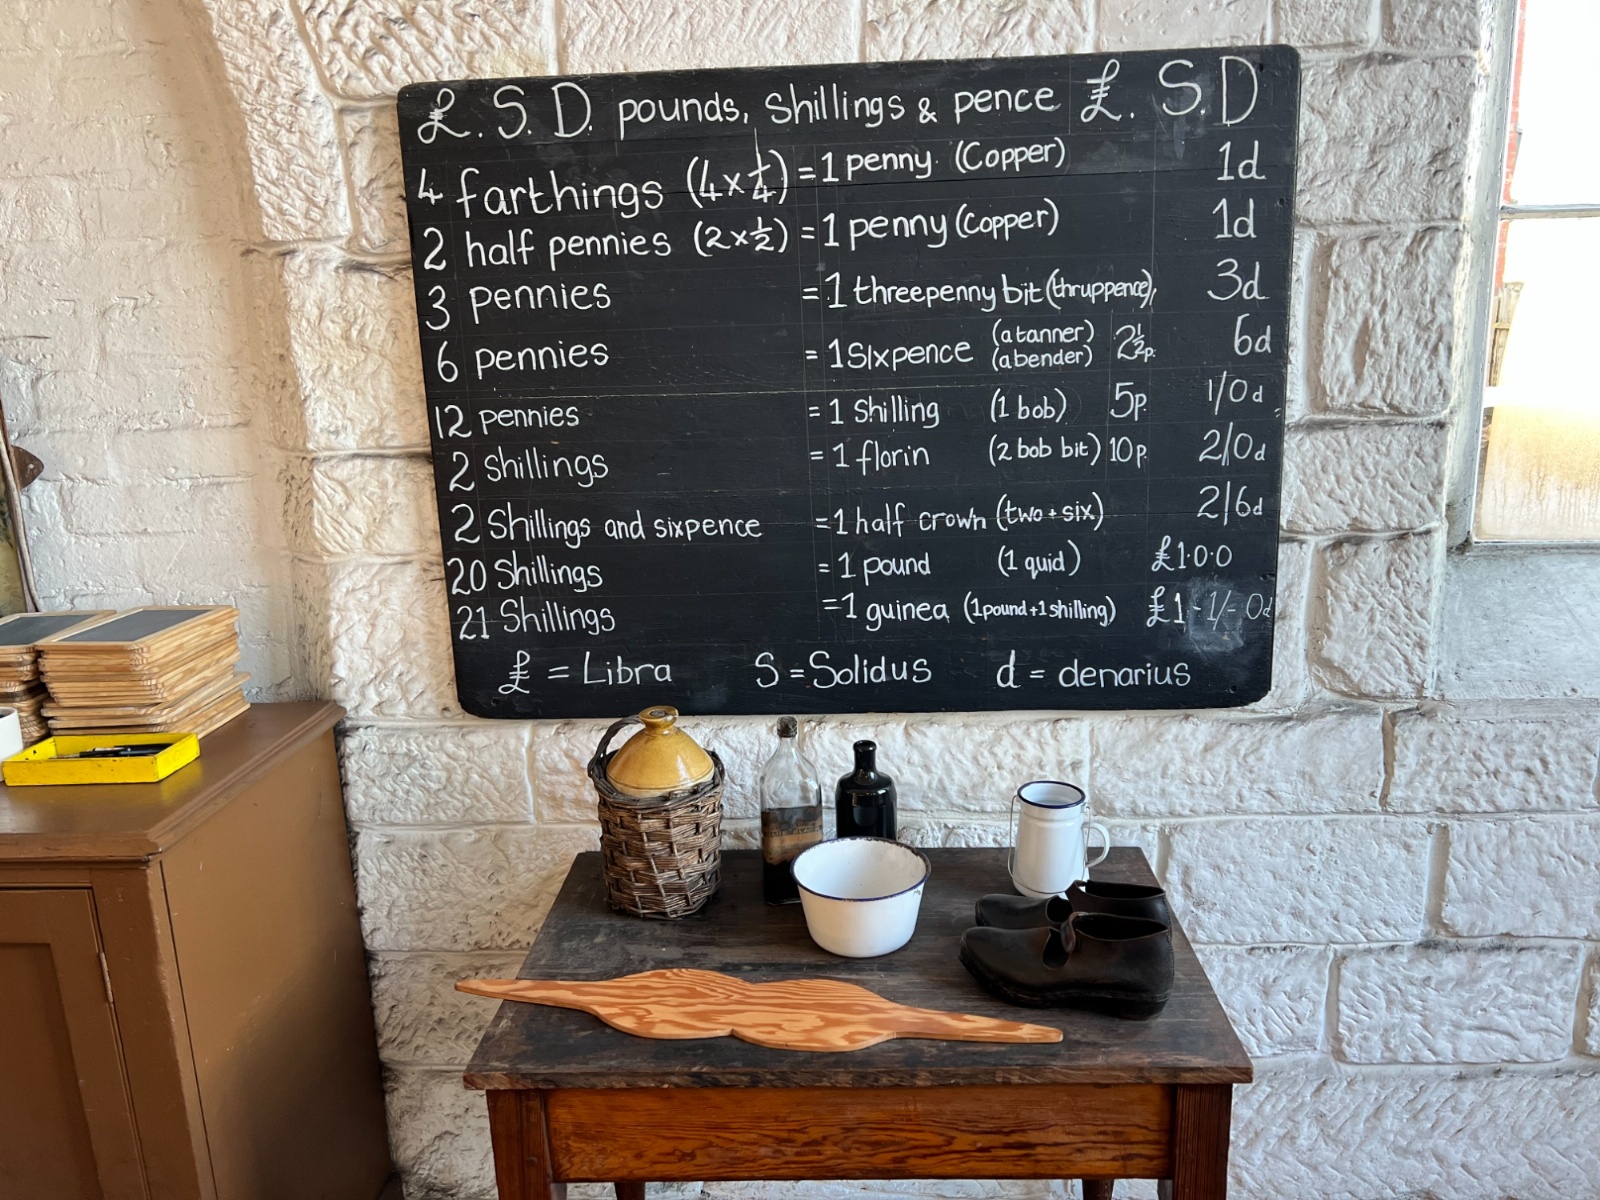 £. S. D. pounds, shillings & pence £. S.D
4 farthings (4 x 1/4) = 1 penny (Copper) 1d
2 half pennies (2 x ½) = 1 penny (Copper) 1d
3 pennies = 1 threepenny bit (thruppence), 3d
6 pennies = 1 sixpence (a tanner) (a bender) 2½p. 6d
12 pennies = 1 Shilling (1 bob) 5p. 1/0d
2 Shillings = 1 florin (2 bob bit) 10p. 2/0d
2 Shillings and sixpence = 1 half crown (two + six) 2/6d
20 Shillings = 1 pound (1 quid) £1·0·0
21 Shillings = 1 guinea (1pound+1shilling) £1-1/-0d
£ = Libra S = Solidus d = denarius